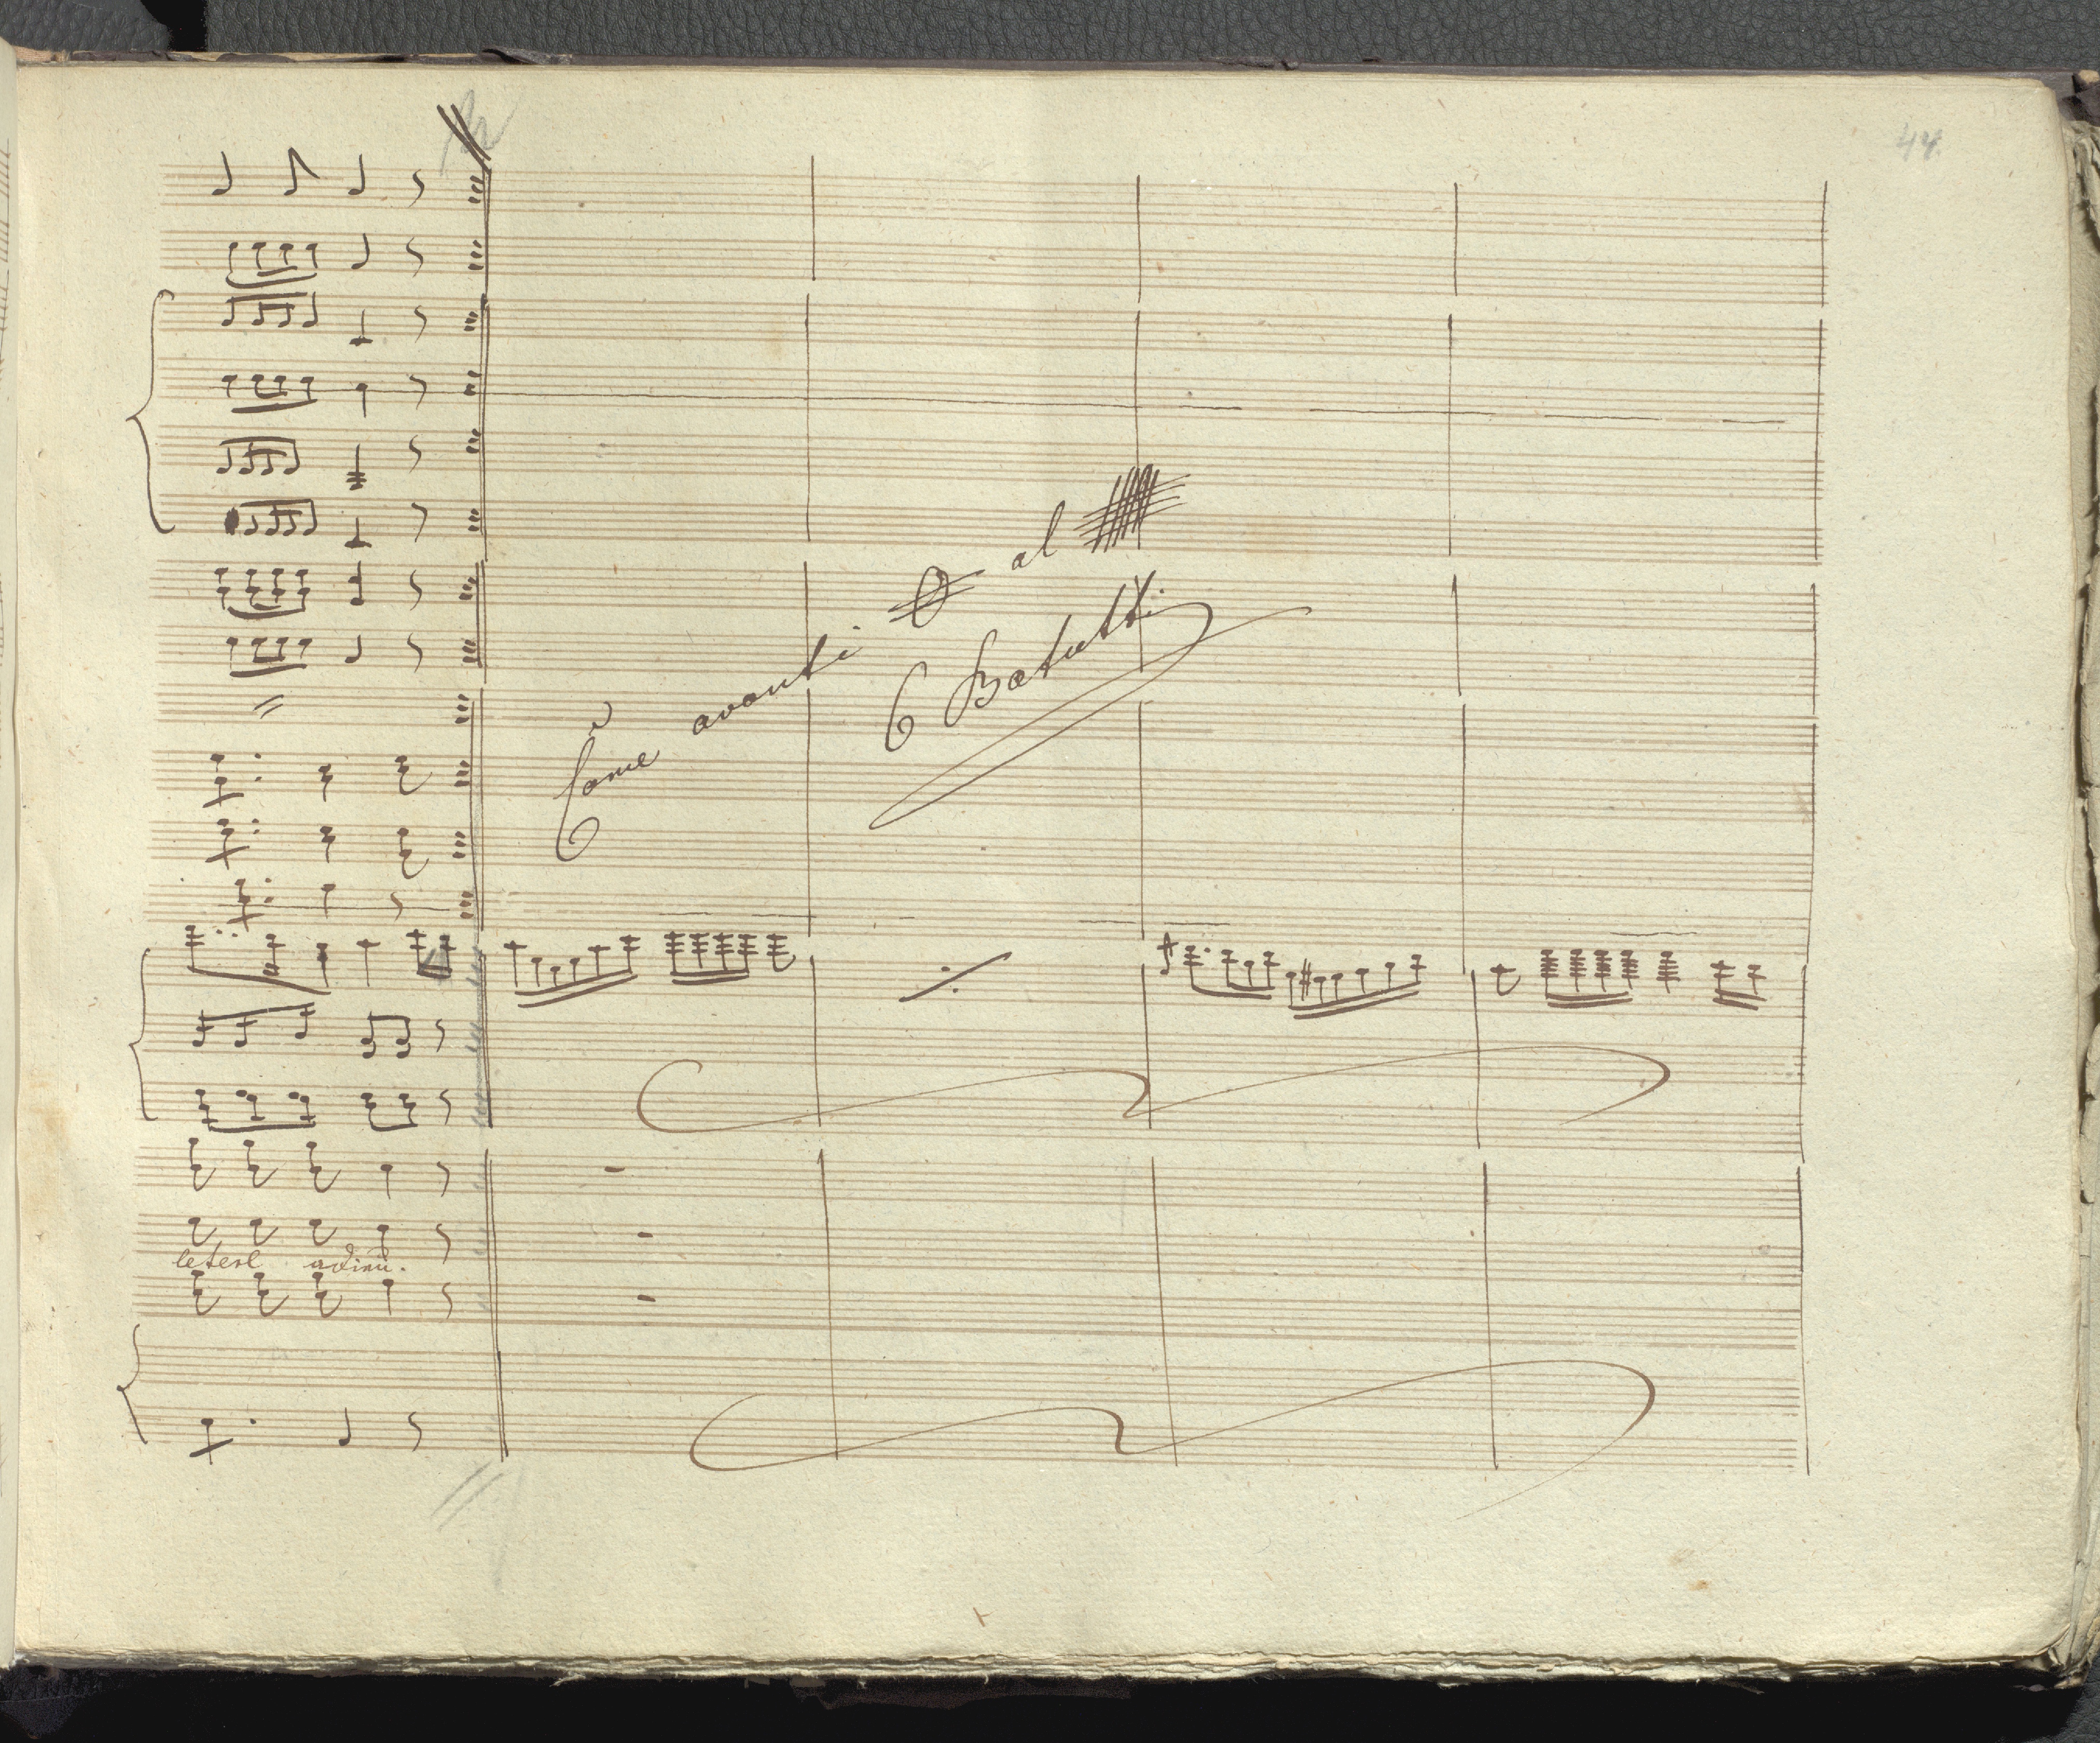 44.
Come avanti al
6 Batutti
letest adieu.